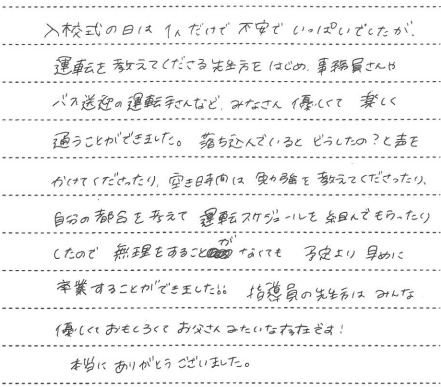 入校式の日は 1人だけで 不安で いっぱいでしたが、
運転を教えてくださる先生方をはじめ、事務員さんや
バス送迎の運転手さんなど、みなさん 優しくて 楽しく
通うことができました。落ち込んでいると どうしたの?と声を
かけてくださったり、空き時間は 勉強を教えてくださったり、
自分の都合を考えて 運転スケジュールを組んでもらったり
したので 無理をすることがなくても 予定より 早めに
卒業することができました!! 指導員の先生方は みんな
優しくておもしろくて お父さんみたいな存在です!
本当に ありがとうございました。